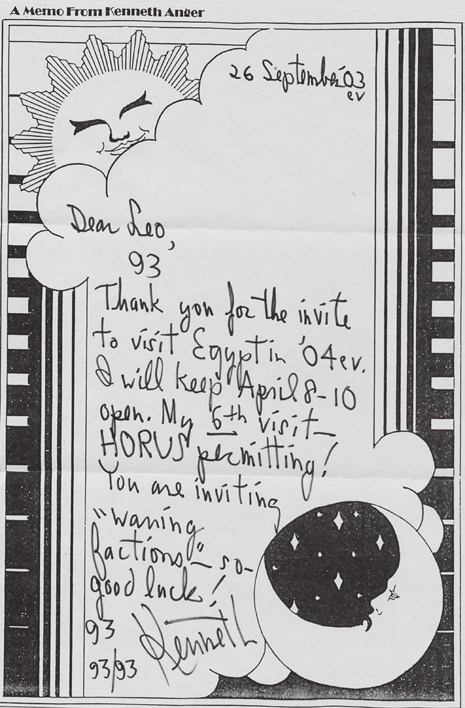 A Memo From Kenneth Anger
26 September '03
ev
Dear Leo,
93
Thank you for the invite
to visit Egypt in '04 ev.
I will keep April 8-10
open. My 6th visit—
HORUS permitting!
You are inviting
"waning
factions" — so—
good luck!
93
Kenneth
93/93